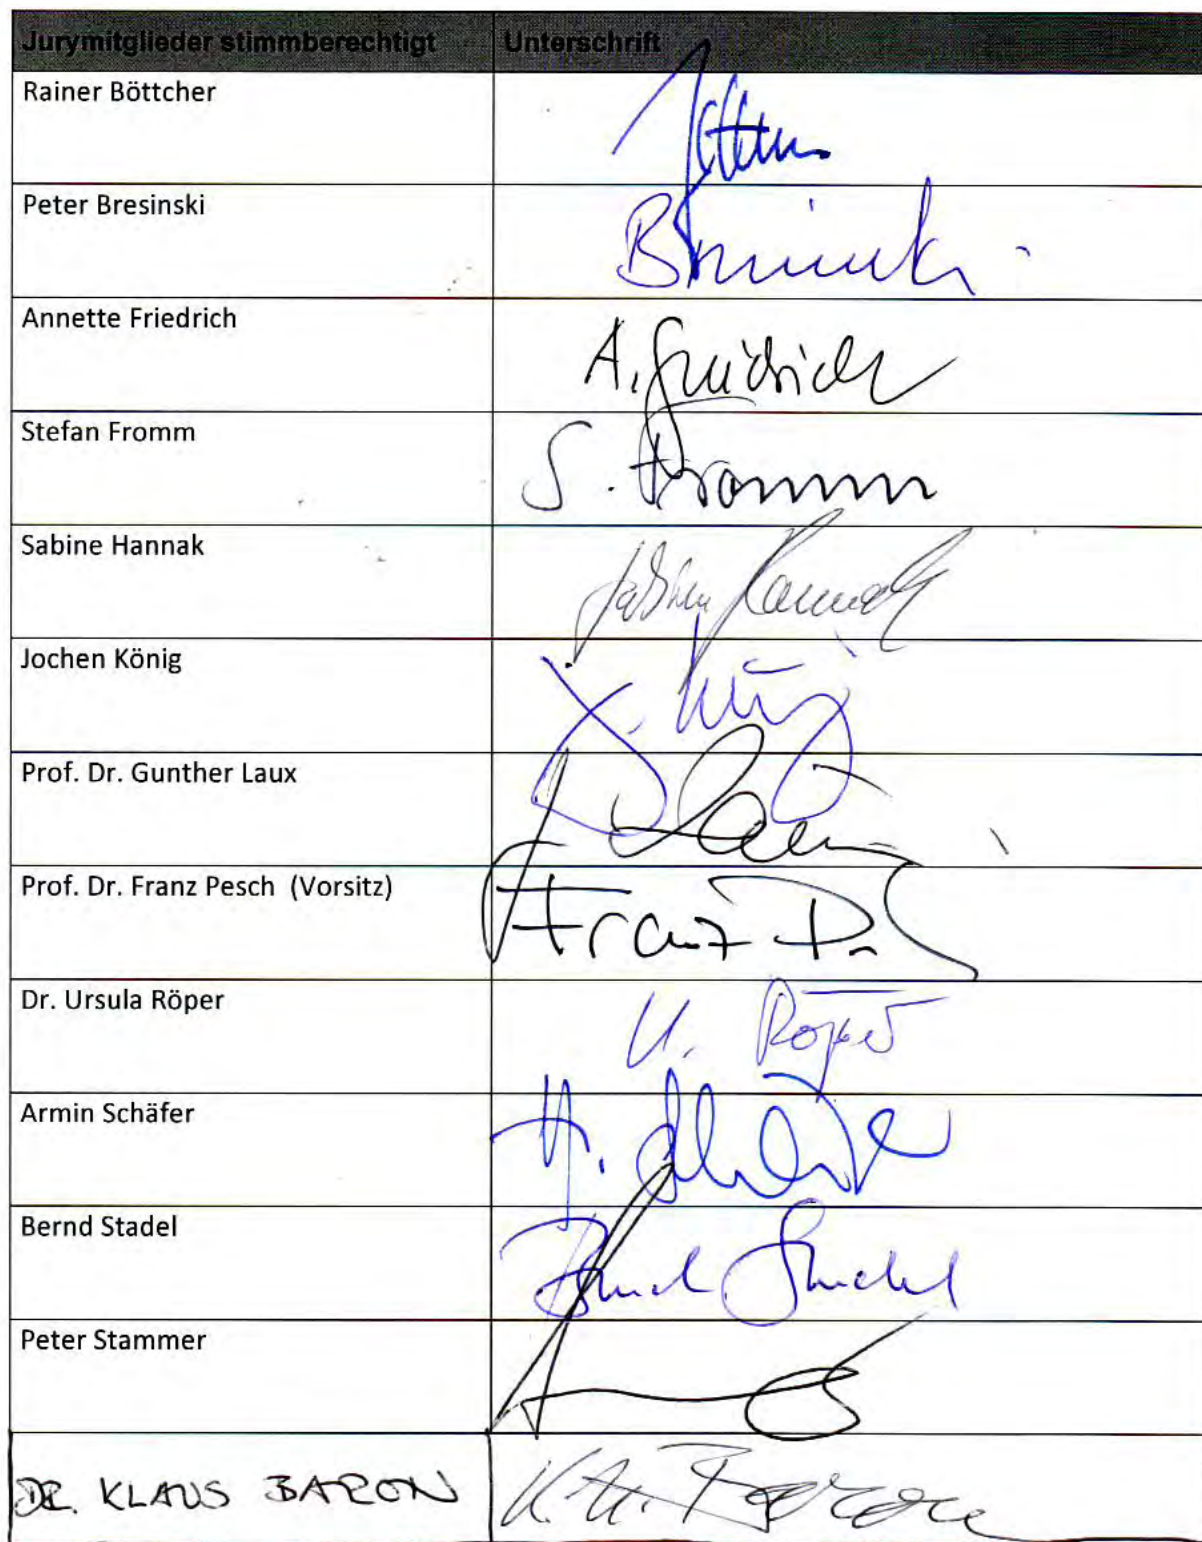 Jurymitglieder stimmberechtigt Unterschrift
Rainer Böttcher
Peter Bresinski
Annette Friedrich A. Friedrich
Stefan Fromm S. Fromm
Sabine Hannak Sabine Hannak
Jochen König J. König
Prof. Dr. Gunther Laux
Prof. Dr. Franz Pesch (Vorsitz) Franz P.
Dr. Ursula Röper U. Röper
Armin Schäfer
Bernd Stadel Bernd Stadel
Peter Stammer
DR. KLAUS BARON K.H. Baron